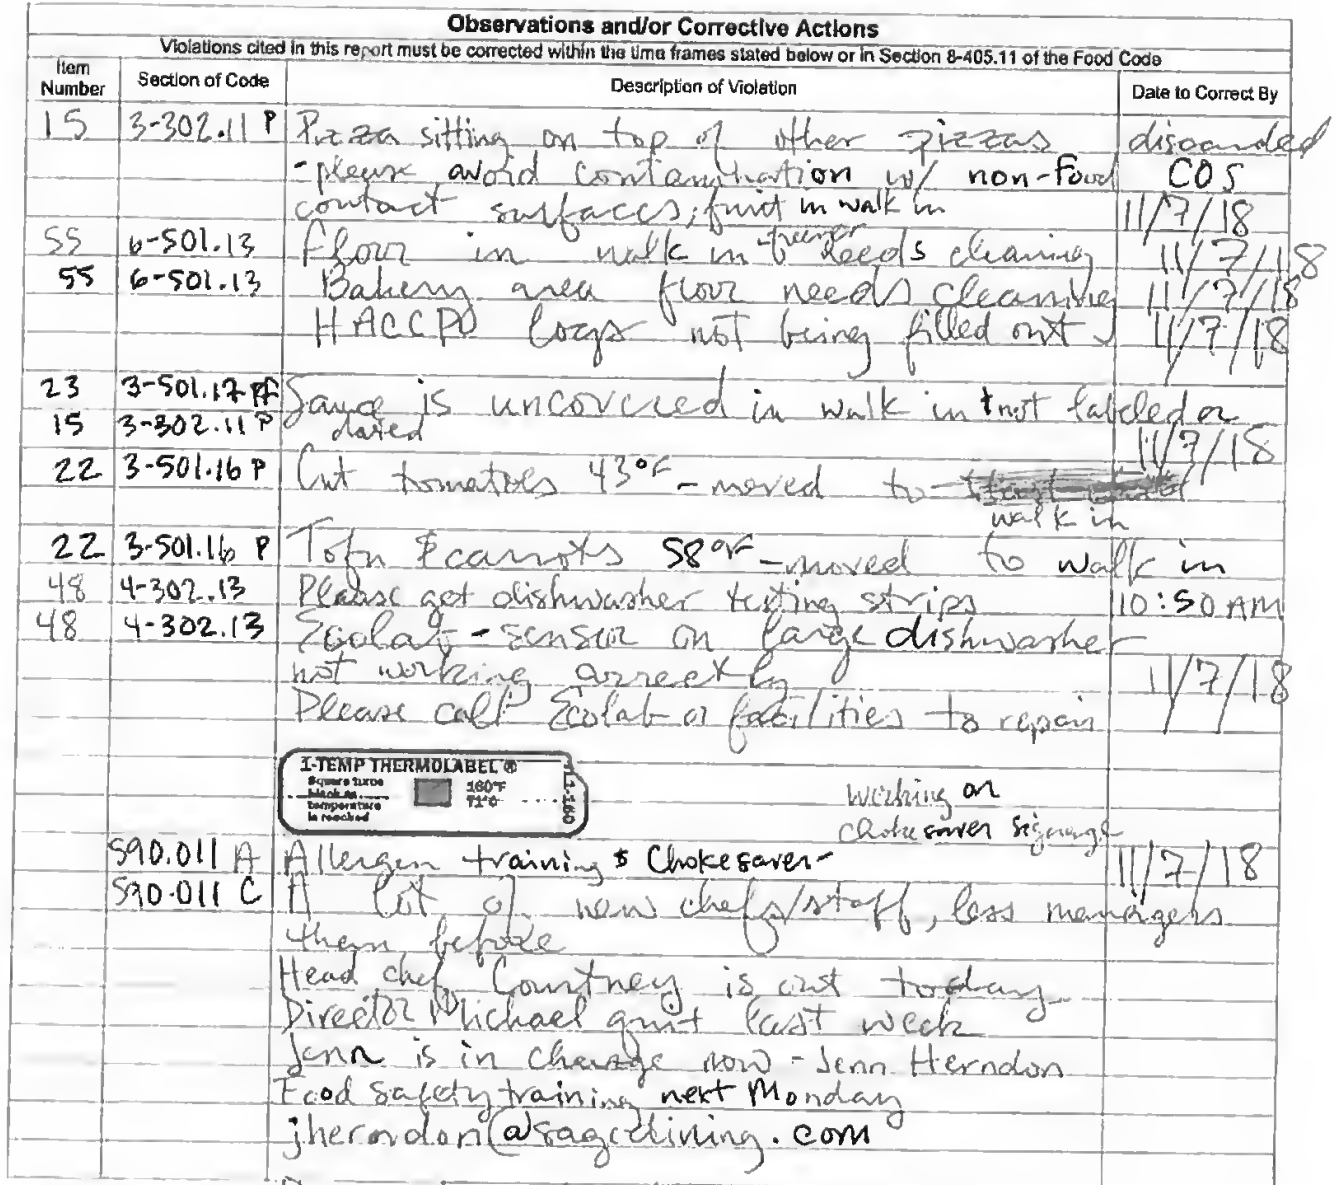 Observations and/or Corrective Actions
Violations cited in this report must be corrected within the time frames stated below or in Section 8-405.11 of the Food Code
Item Number Section of Code Description of Violation Date to Correct By
15 3-302.11 P Pizza sitting on top of other pizzas discarded
- please avoid contamination w/ non-food COS
contact surfaces; fruit in walk in 11/7/18
55 6-501.13 Floor in walk in freezer needs cleaning 11/7/18
55 6-501.13 Bakery area floor needs cleaning 11/7/18
HACCP logs not being filled out 11/7/18
23 3-501.17 Pf Sauce is uncovered in walk in + not labeled or
15 3-302.11 P dated 11/7/18
22 3-501.16 P Cut tomatoes 43°F - moved to
walk in
22 3-501.16 P Tofu & carrots 58°F - moved to walk in
48 4-302.13 Please get dishwasher testing strips 10:50 AM
48 4-302.13 Ecolab - sensor on large dishwasher
not working correctly 11/7/18
Please call Ecolab or facilities to repair
I-TEMP THERMOLABEL®
Square turns black as temperature is reached 160°F 71°C TL1-160
working on
chokesaver signage
590.011 A Allergen training & Chokesaver - 11/7/18
590.011 C A lot of new chefs/staff, less managers
then before
Head chef Courtney is out today
Director Michael quit last week
Jenn is in charge now - Jenn Herndon
Food safety training next Monday
jherndon@sagedining.com